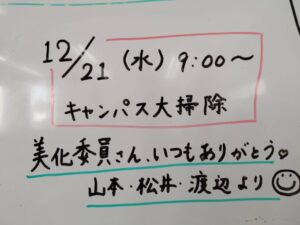 12/21（水）9:00〜
キャンパス大掃除
美化委員さん、いつもありがとう♡
山本・松井・渡辺より☺